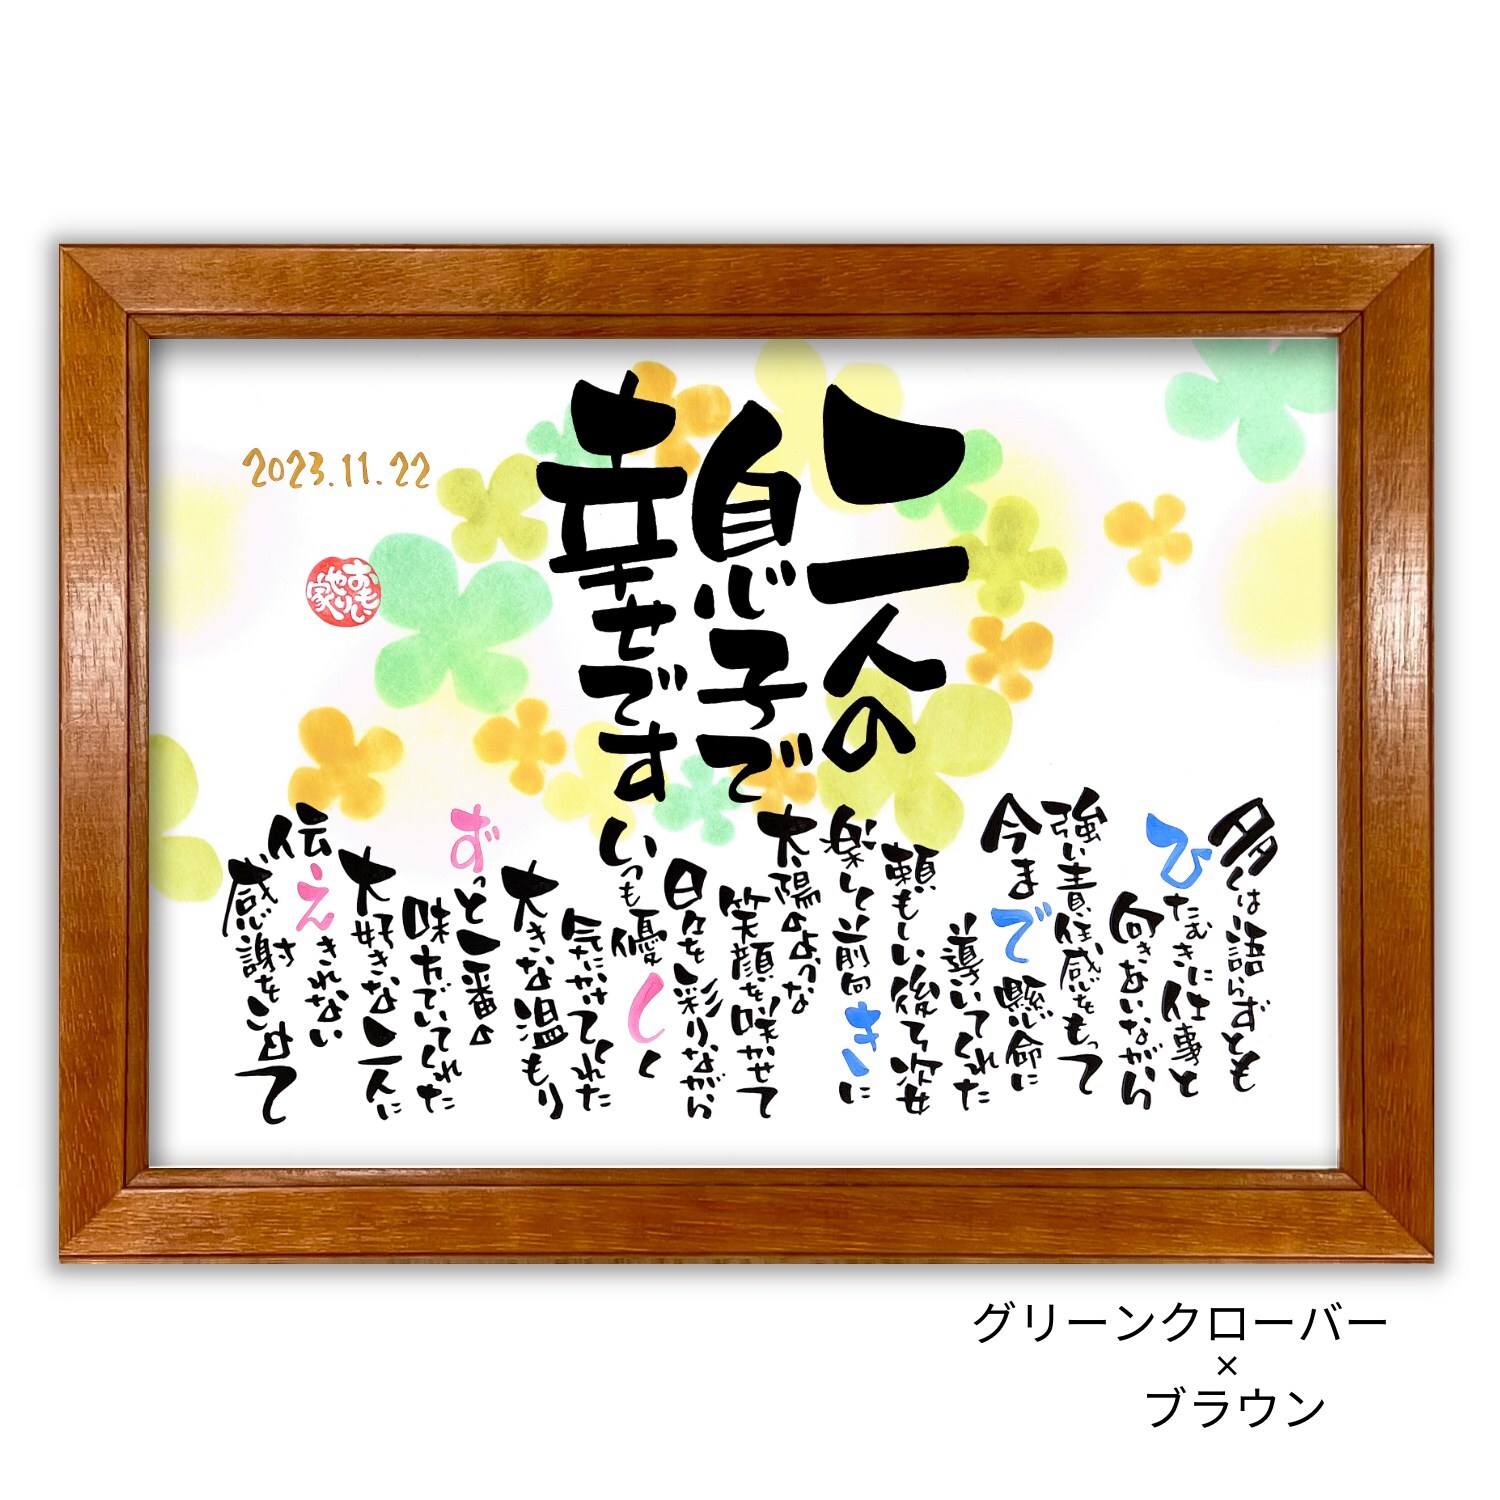 二人の
息子で
幸せです
多くは語らずとも
ひたむきに仕事と
向きあいながら
強い責任感をもって
今まで懸命に
導いてくれた
頼もしい後ろ姿
楽しく前向きに
太陽のような
笑顔を咲かせて
日々を彩りながら
いつも優しく
気にかけてくれた
大きな温もり
ずっと一番の
味方でいてくれた
大好きな二人に
伝えきれない
感謝をこめて
2023.11.22
おもい
やり
家
グリーンクローバー
×
ブラウン